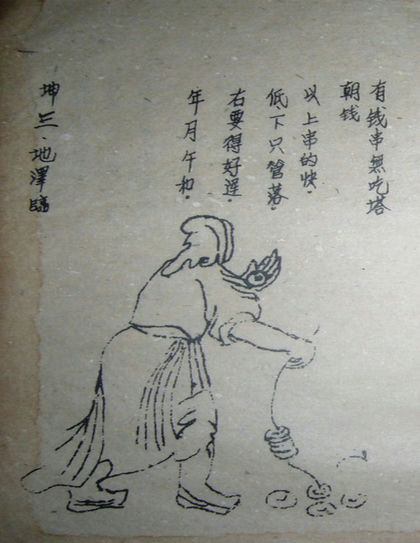 有钱串無吃塔
朝钱
以上串的快。
低下只管落。
右要得好。
年月午和。
坤三、地澤臨